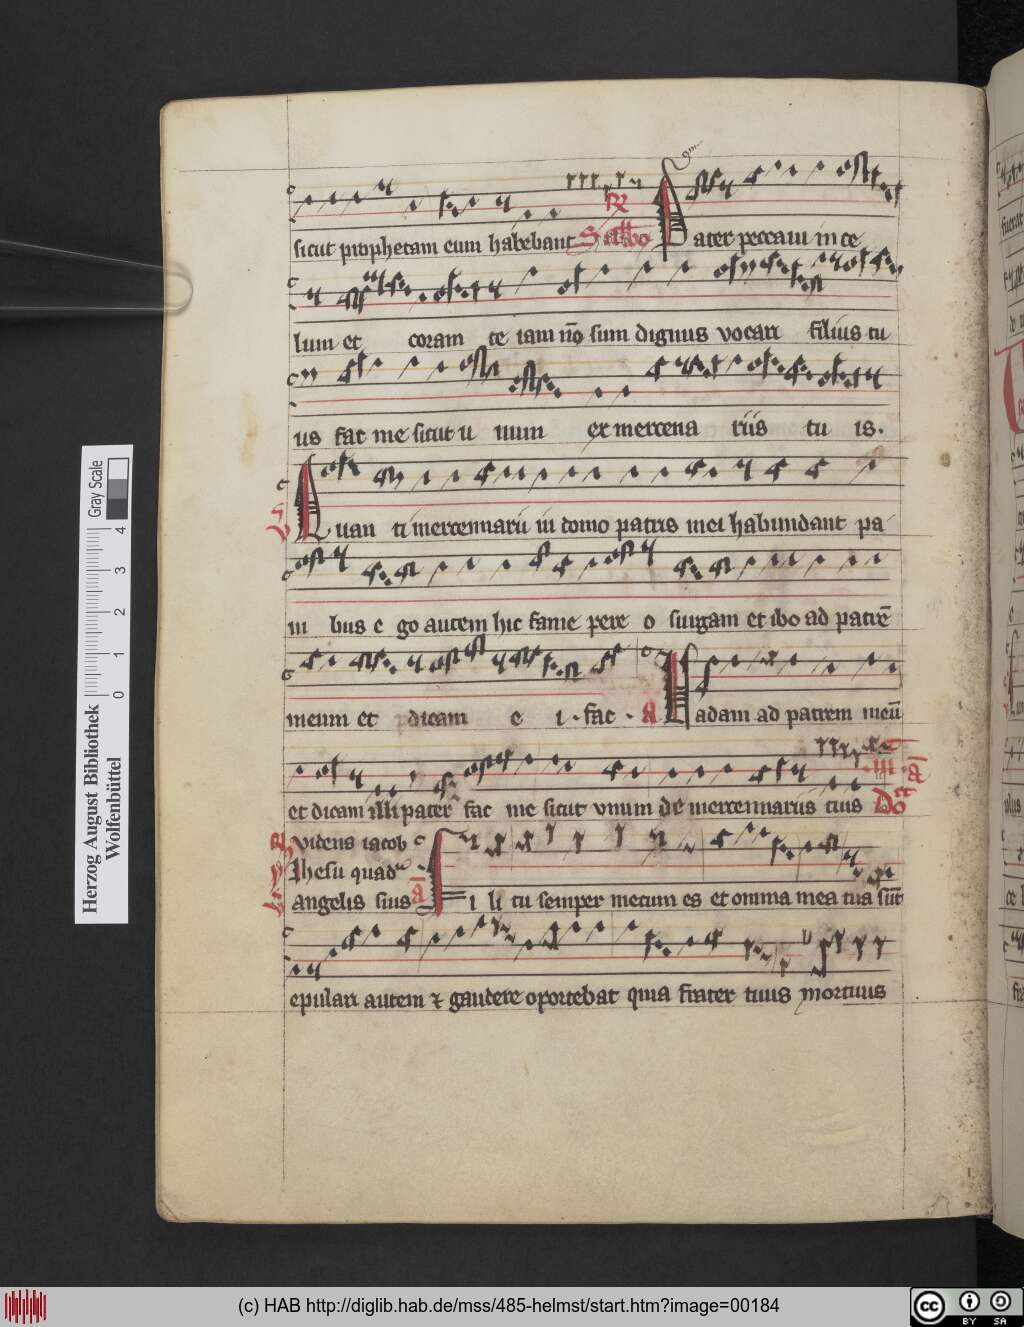 sicut prophetam eum habebant Sabbo Pater peccaui in ce
lum et coram te iam nō sum dignus vocari filius tu
us fac me sicut u num ex mercena riis tu is.
Quan ti mercennarii in domo patris mei habundant pa
ni bus e go autem hic fame pere o surgam et ibo ad patrē
meum et dicam e i. fac. a Uadam ad patrem meū
et dicam illi pater fac me sicut vnum de mercennariis tuis
Videns iacob
Ihesu quad
angelis suis
Fi li tu semper mecum es et omnia mea tua sūt
epulari autem et gaudere oportebat quia frater tuus mortuus
Herzog August Bibliothek
Wolfenbüttel
0 1 2 3 4
Gray Scale
(c) HAB http://diglib.hab.de/mss/485-helmst/start.htm?image=00184
cc BY SA